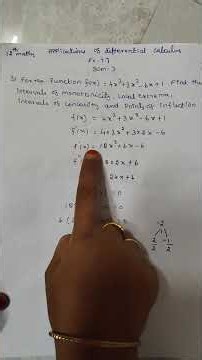 12th maths Applications of differential calculus
Ex 7.7
Sum-3
3) For the Function f(x) = 4x³+3x²-6x+1 Find the
Intervals of monotonicity, Local extrema,
Intervals of concavity and Points of Inflection
f(x) = 4x³+3x²-6x+1
f'(x) = 4×3x²+3×2x-6
f'(x) = 12x²+6x-6
2x+6
24x+6
= 0
-2
2 -1
2 2